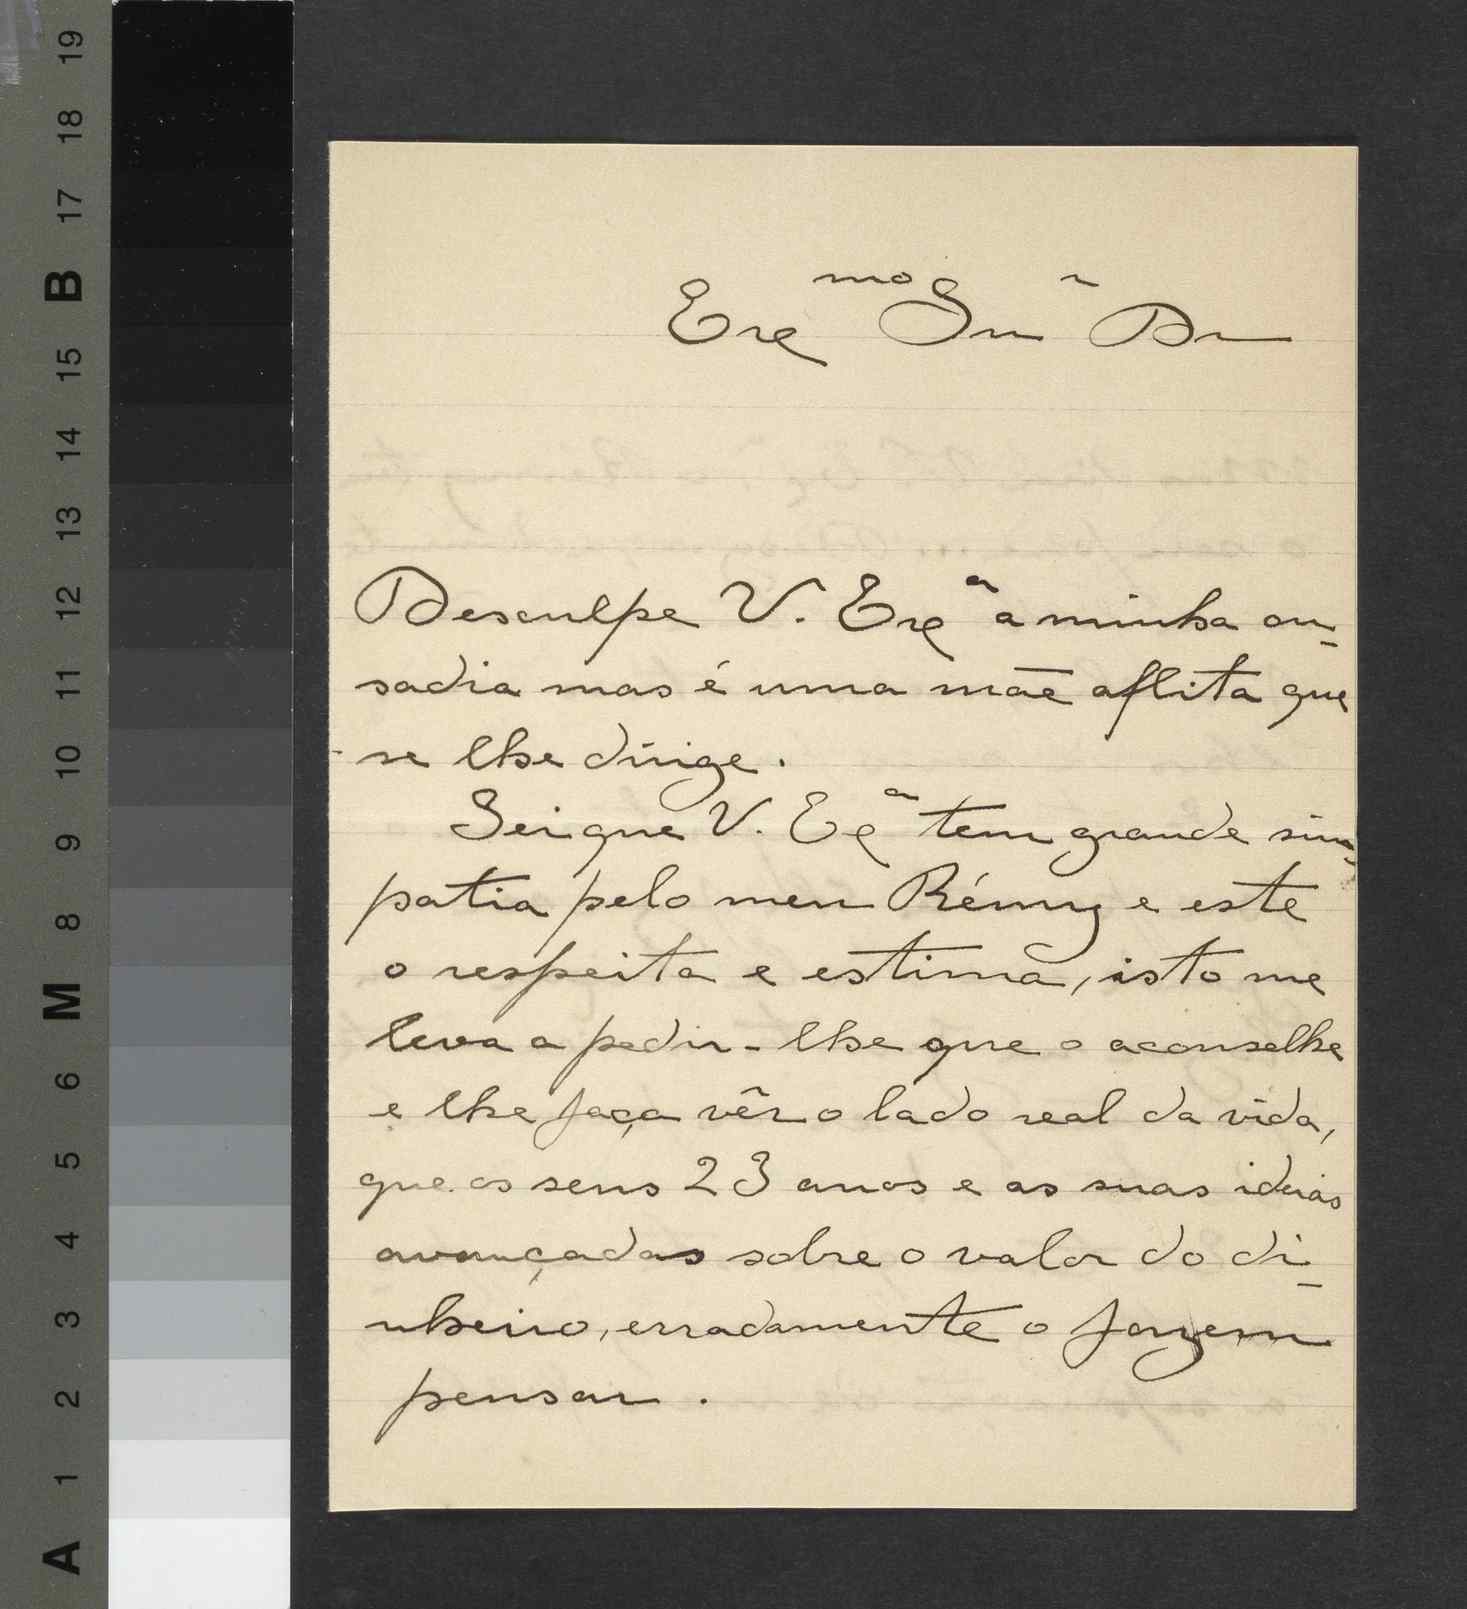 19
18
17
B
16
15
14
13
12
11
10
9
8
M
6
5
4
3
2
1
A
Exᵐᵒ Snr Dr
Desculpe V. Exª a minha ou-
sadia mas é uma mãe aflita que
se lhe dirige.
Sei que V. Eª tem grande sim-
patia pelo meu Rémy e este
o respeita e estima, isto me
leva a pedir-lhe que o aconselhe
e lhe faça vêr o lado real da vida,
que os seus 23 anos e as suas ideias
avançadas sobre o valor do di-
nheiro, erradamente o fazem
pensar.